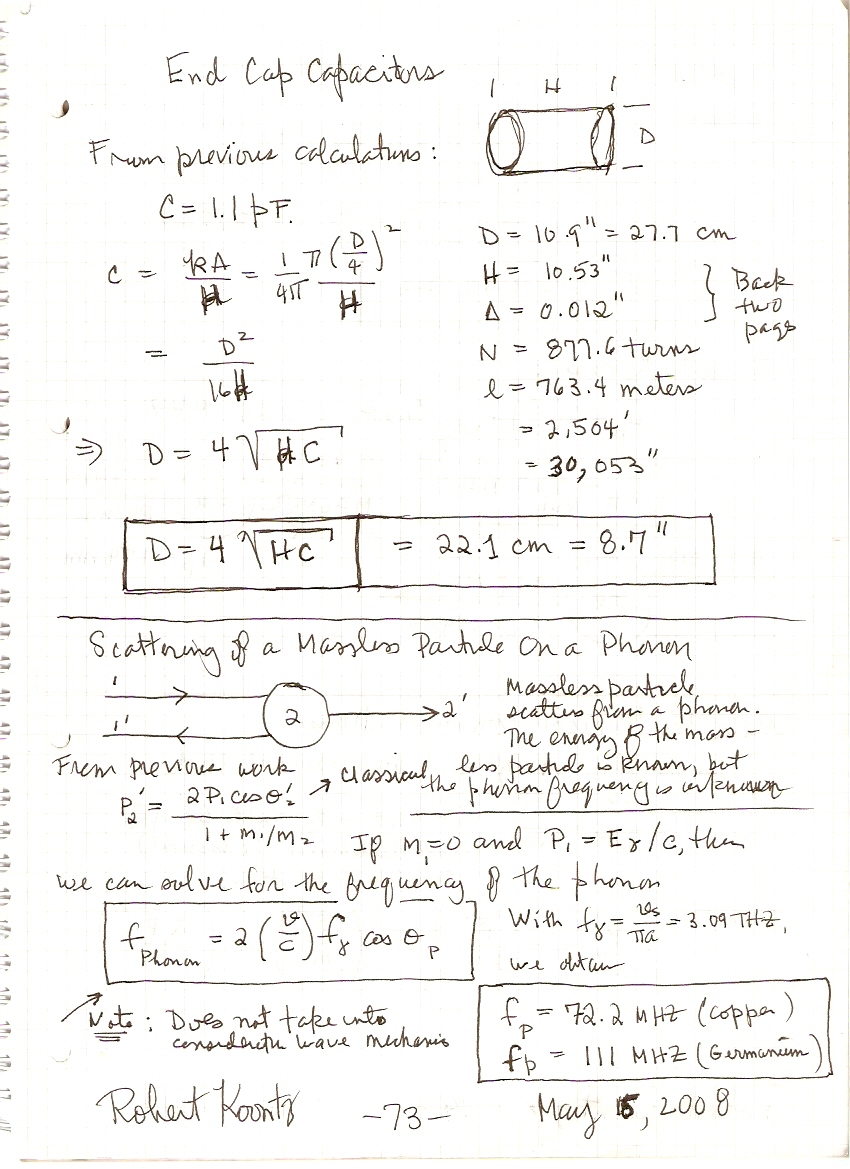 End Cap Capacitors
H
D
From previous calculations:
C = 1.1 pF.
C = kA/H = 1/4π π(D/4)²/H
= D²/16H
⇒ D = 4√HC
D = 10.9" = 27.7 cm
H = 10.53"
Δ = 0.012"
} Back two pages
N = 877.6 turns
l = 763.4 meters
= 2,504'
= 30,053"
D = 4√HC = 22.1 cm = 8.7"
Scattering of a Massless Particle On a Phonon
1
1'
2
2'
Massless particle
scatters from a phonon.
The energy of the mass-
less particle is known, but
the phonon frequency is unknown
From previous work
P₂' = 2P₁ cos θ₂' / 1 + m₁/m₂ → classical
If m₁=0 and P₁ = Eγ/c, then
we can solve for the frequency of the phonon
f Phonon = 2 (v/c) fγ cos θp
With fγ = vs/πa = 3.09 THZ,
we obtain
Note: Does not take into
consideration wave mechanics
fp = 72.2 MHZ (copper)
fp = 111 MHZ (Germanium)
Robert Koontz
-73-
May 15, 2008